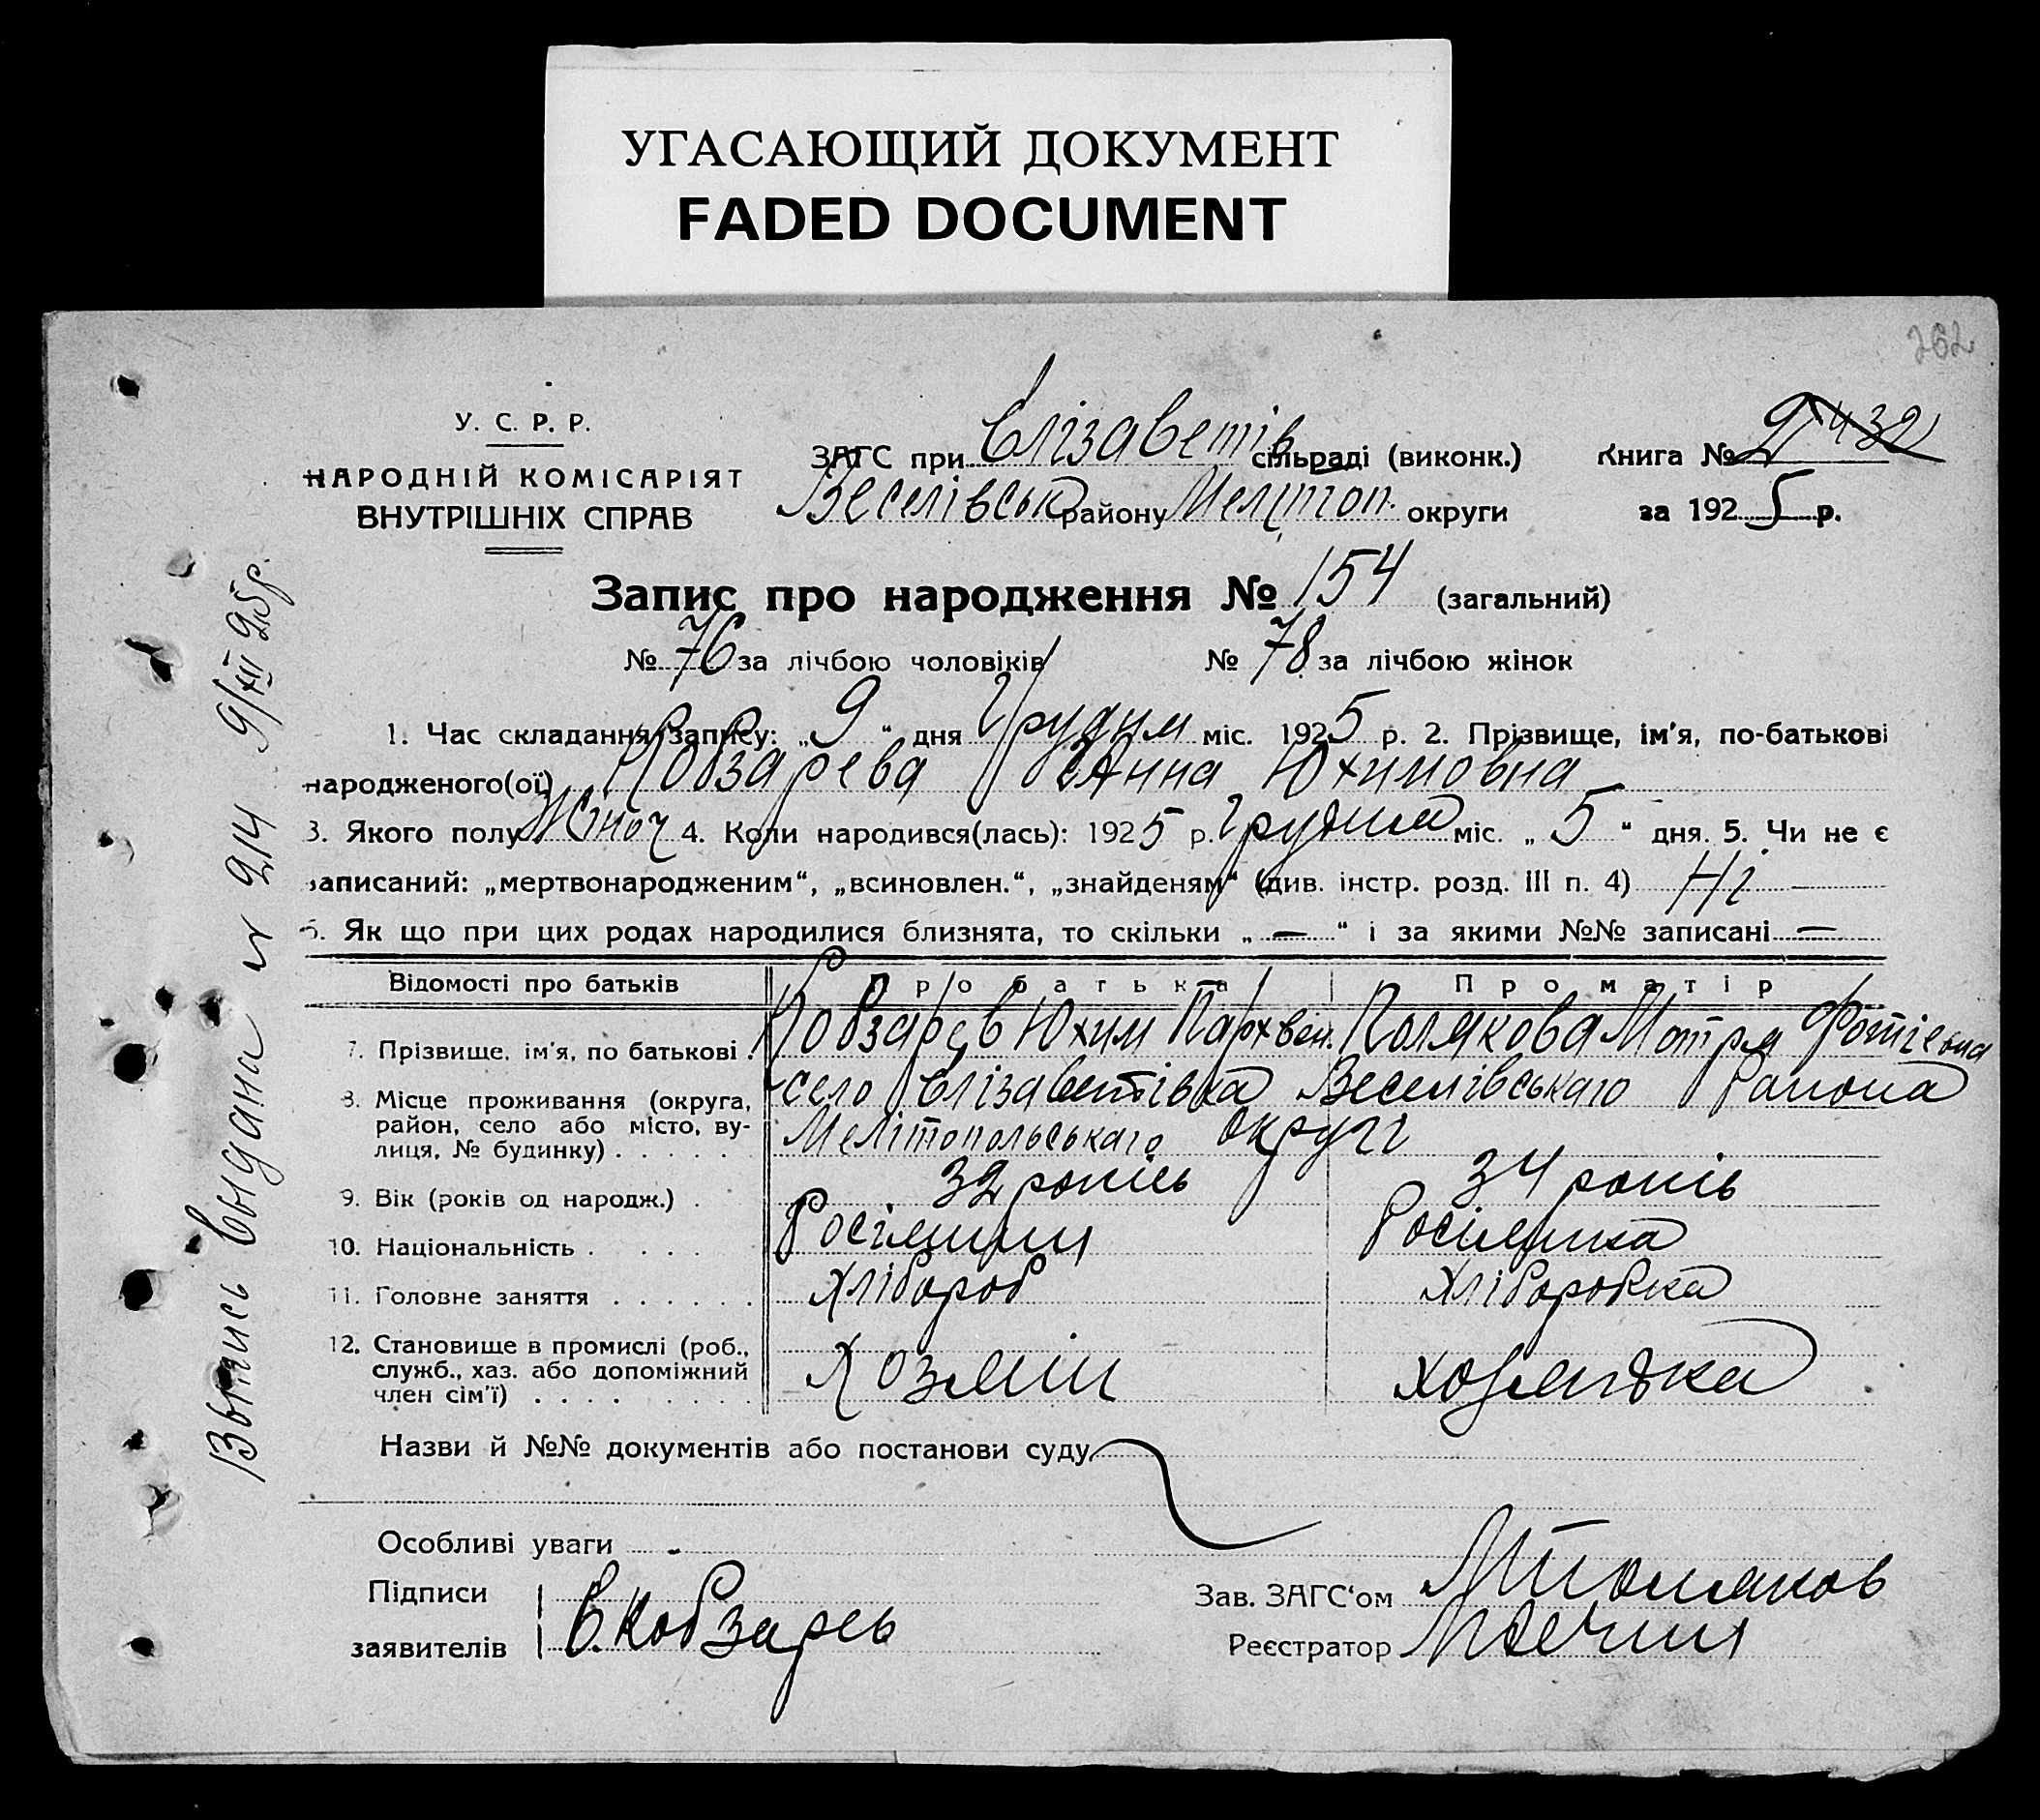 УГАСАЮЩИЙ ДОКУМЕНТ
FADED DOCUMENT
262
У. С. Р. Р.
НАРОДНІЙ КОМІСАРІЯТ
ВНУТРІШНІХ СПРАВ
ЗАГС при Єлізаветів сільраді (виконк.) Книга №
Веселівськ району Мелітоп. округи за 1925 р.
Запис про народження № 154 (загальний)
№ 76 за лічбою чоловіків № 78 за лічбою жінок
1. Час складання запису: „9“ дня Грудня міс. 1925 р. 2. Прізвище, ім'я, по-батькові
народженого(ої) Кобзарева Ганна Юхимовна
3. Якого полу Жіноч 4. Коли народився(лась): 1925 р. Грудня міс. „5“ дня. 5. Чи не є
записаний: „мертвонародженим“, „всиновлен.“, „знайденям“ (див. інстр. розд. III п. 4) Ні
6. Як що при цих родах народилися близнята, то скільки „—“ і за якими №№ записані —
Відомості про батьків Про батька Про матір
7. Прізвище, ім'я, по батькові . Кобзарєв Юхим Пархвен. Полякова Мотря Фотієвна
8. Місце проживання (округа, село Єлізаветівка Веселівського Района
район, село або місто, ву-
лиця, № будинку) . . . . . . Мелітопольського округи
9. Вік (років од народж.) . 32 років 34 років
10. Національність . . . . Росіянин Росіянка
11. Головне заняття . . . . . . Хлібороб Хлібборобка
12. Становище в промислі (роб.,
служб., хаз. або допоміжний Хозяин хозяйка
член сім'ї) . . . . . . . .
Назви й №№ документів або постанови суду
Особливі уваги -
Підписи Зав. ЗАГС‘ом Поляков
заявителів Е. Кобзарев Реєстратор
Выпись выдана № 214 9/XII 25р.